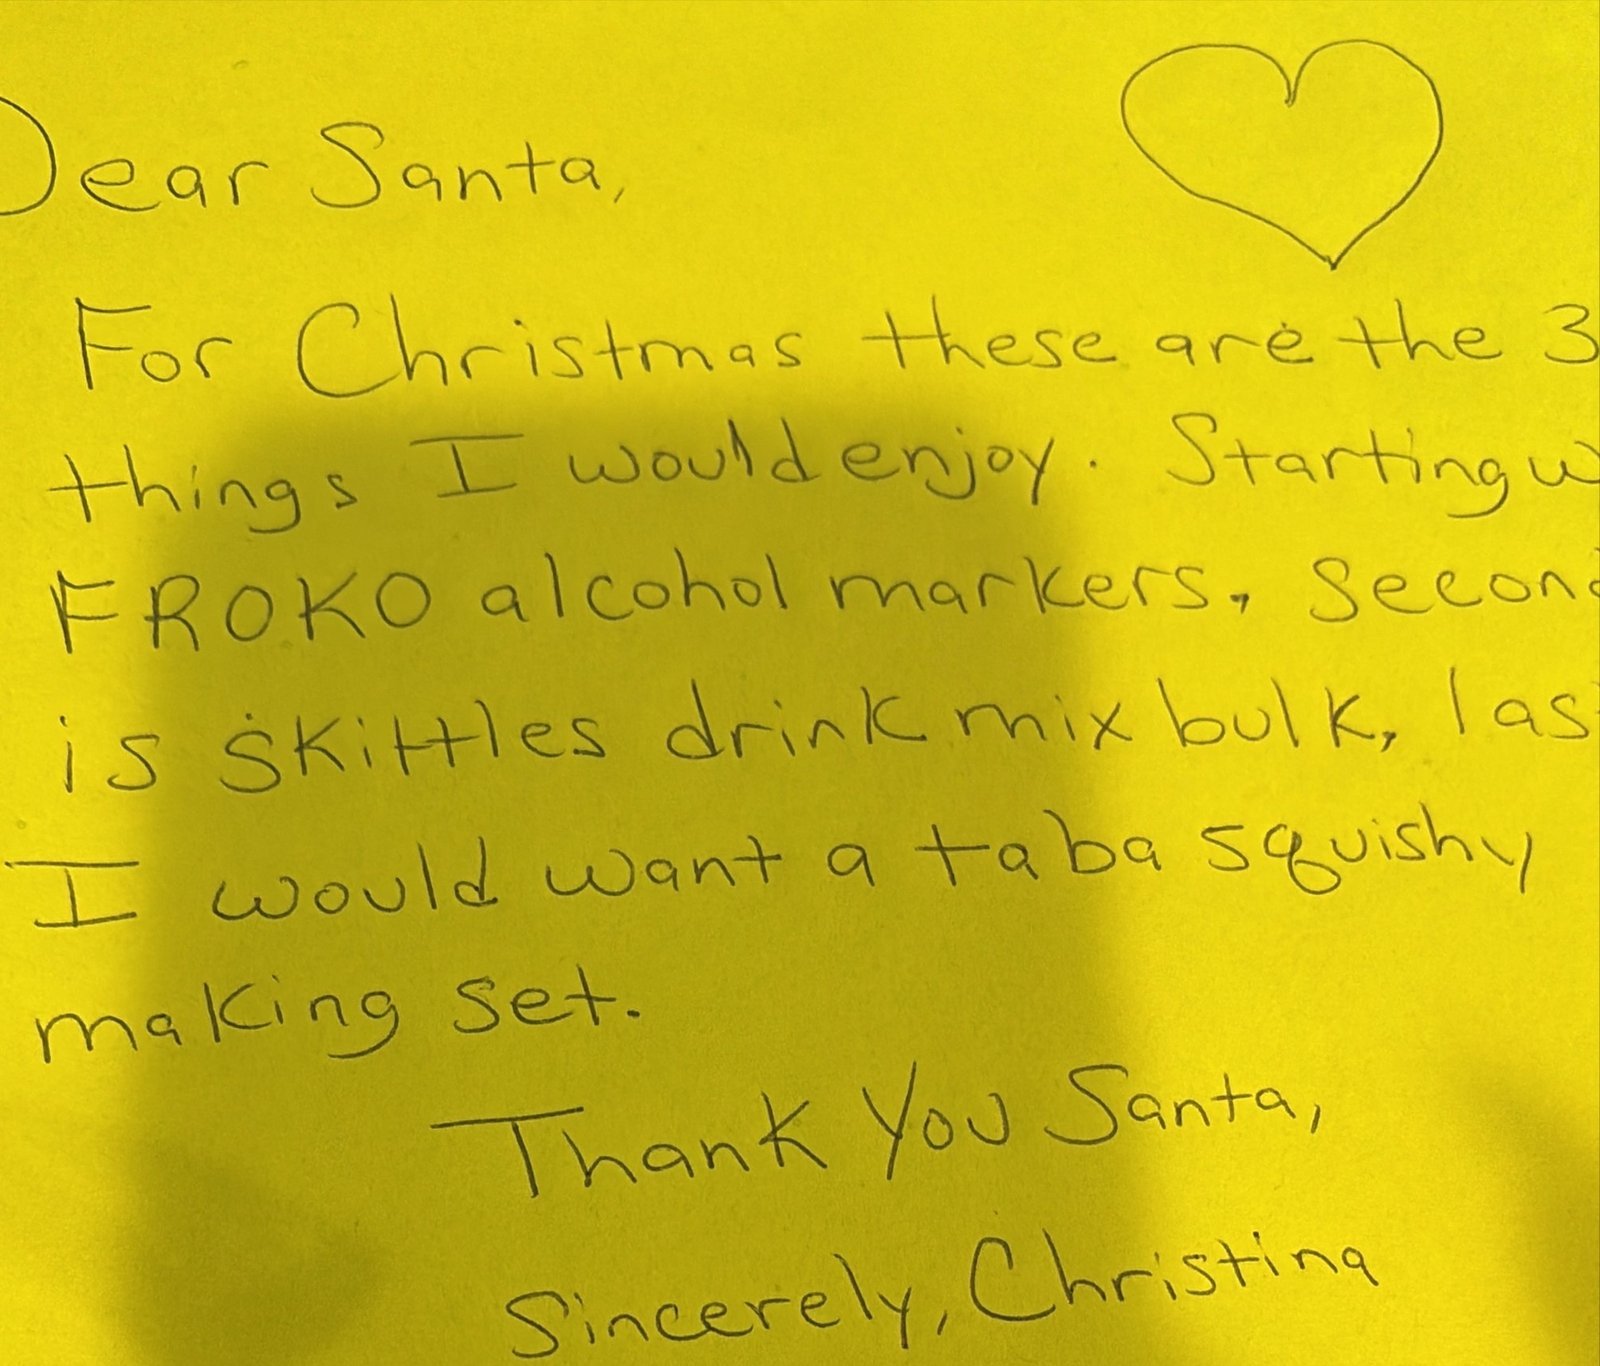 Dear Santa,
For Christmas these are the 3
things I would enjoy. Starting w
FROKO alcohol markers, Secon
is skittles drink mix bulk, las
I would want a taba squishy
making set.
Thank You Santa,
Sincerely, Christina